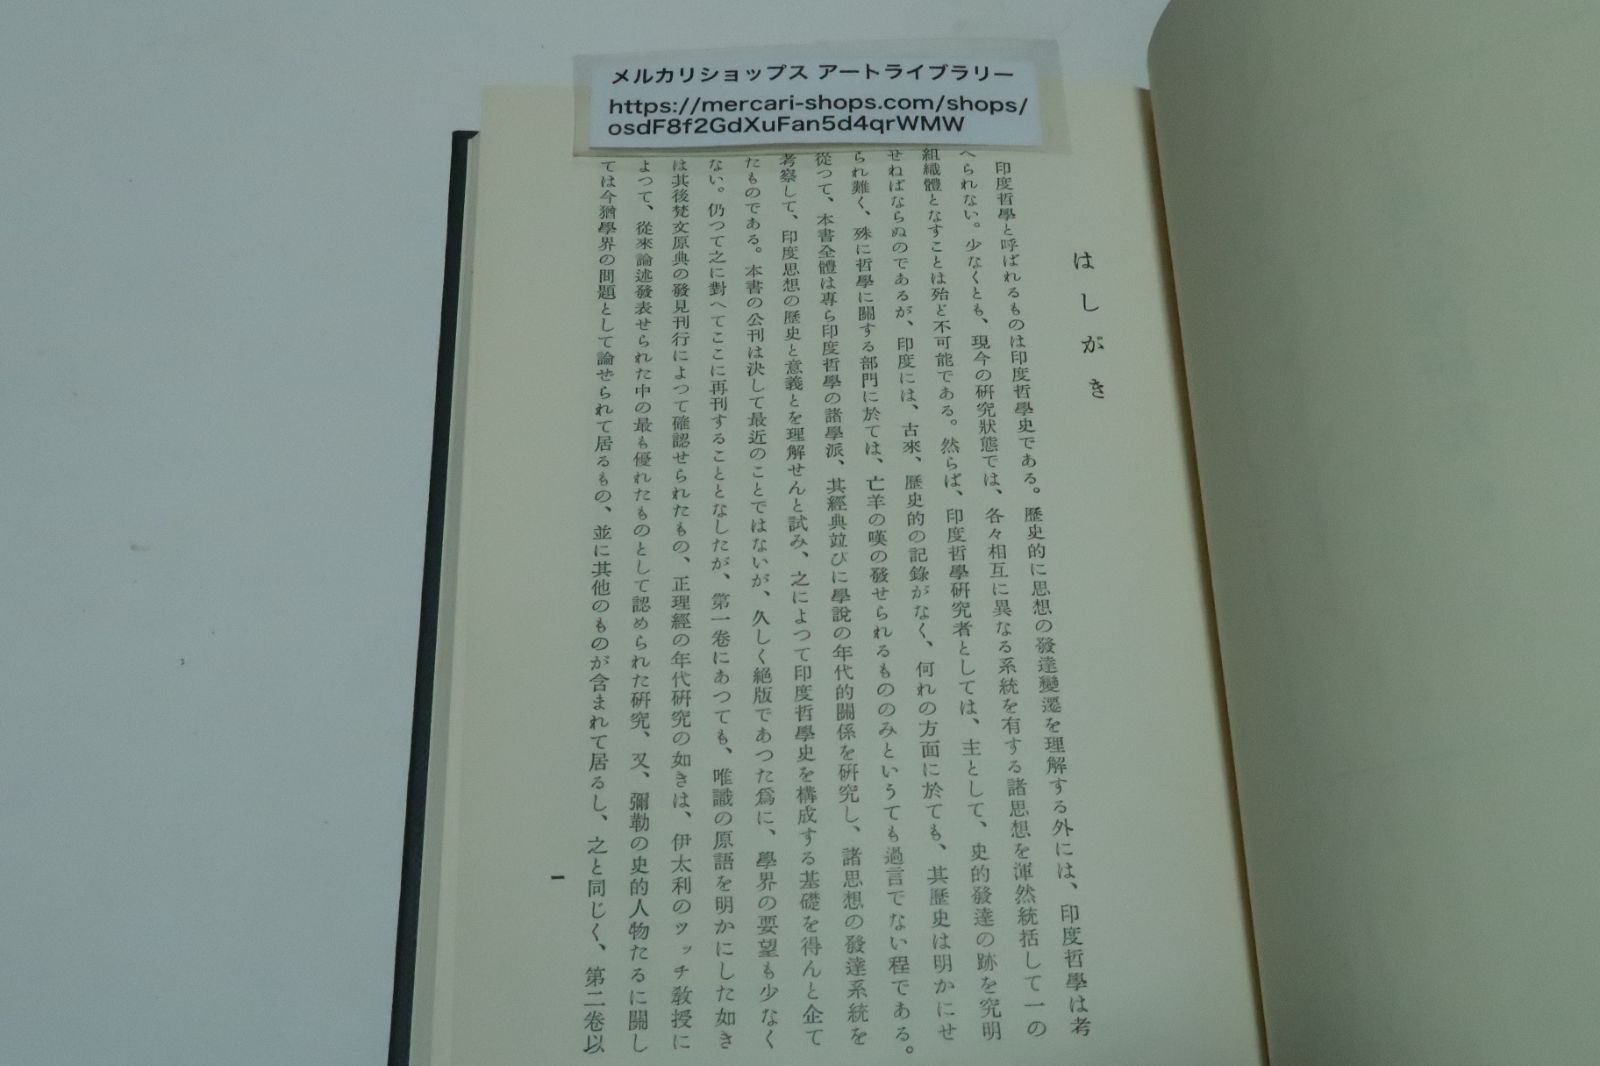 メルカリショップス アートライブラリー
https://mercari-shops.com/shops/
osdF8f2GdXuFan5d4qrWMW
はしがき
印度哲學と呼ばれるものは印度哲學史である。歷史的に思想の發達變遷を理解する外には、印度哲學は考
へられない。少なくとも、現今の硏究狀態では、各々相互に異なる系統を有する諸思想を渾然統括して一の
組織體となすことは殆ど不可能である。然らば、印度哲學硏究者としては、主として、史的發達の跡を究明
せねばならぬのであるが、印度には、古來、歷史的の記錄がなく、何れの方面に於ても、其歷史は明かにせ
られ難く、殊に哲學に關する部門に於ては、亡羊の嘆の發せられるもののみというても過言でない程である。
從つて、本書全體は專ら印度哲學の諸學派、其經典並びに學說の年代的關係を硏究し、諸思想の發達系統を
考察して、印度思想の歷史と意義とを理解せんと試み、之によつて印度哲學史を構成する基礎を得んと企て
たものである。本書の公刊は決して最近のことではないが、久しく絕版であつた爲に、學界の要望も少なく
ない。仍つて之に對へてここに再刊することとなしたが、第一卷にあつても、唯識の原語を明かにした如き
は其後梵文原典の發見刊行によつて確認せられたもの、正理經の年代硏究の如きは、伊太利のツッチ敎授に
よつて、從來論述發表せられた中の最も優れたものとして認められた硏究、又、彌勒の史的人物たるに關し
ては今猶學界の問題として論せられて居るもの、並に其他のものが含まれて居るし、之と同じく、第二卷以
一